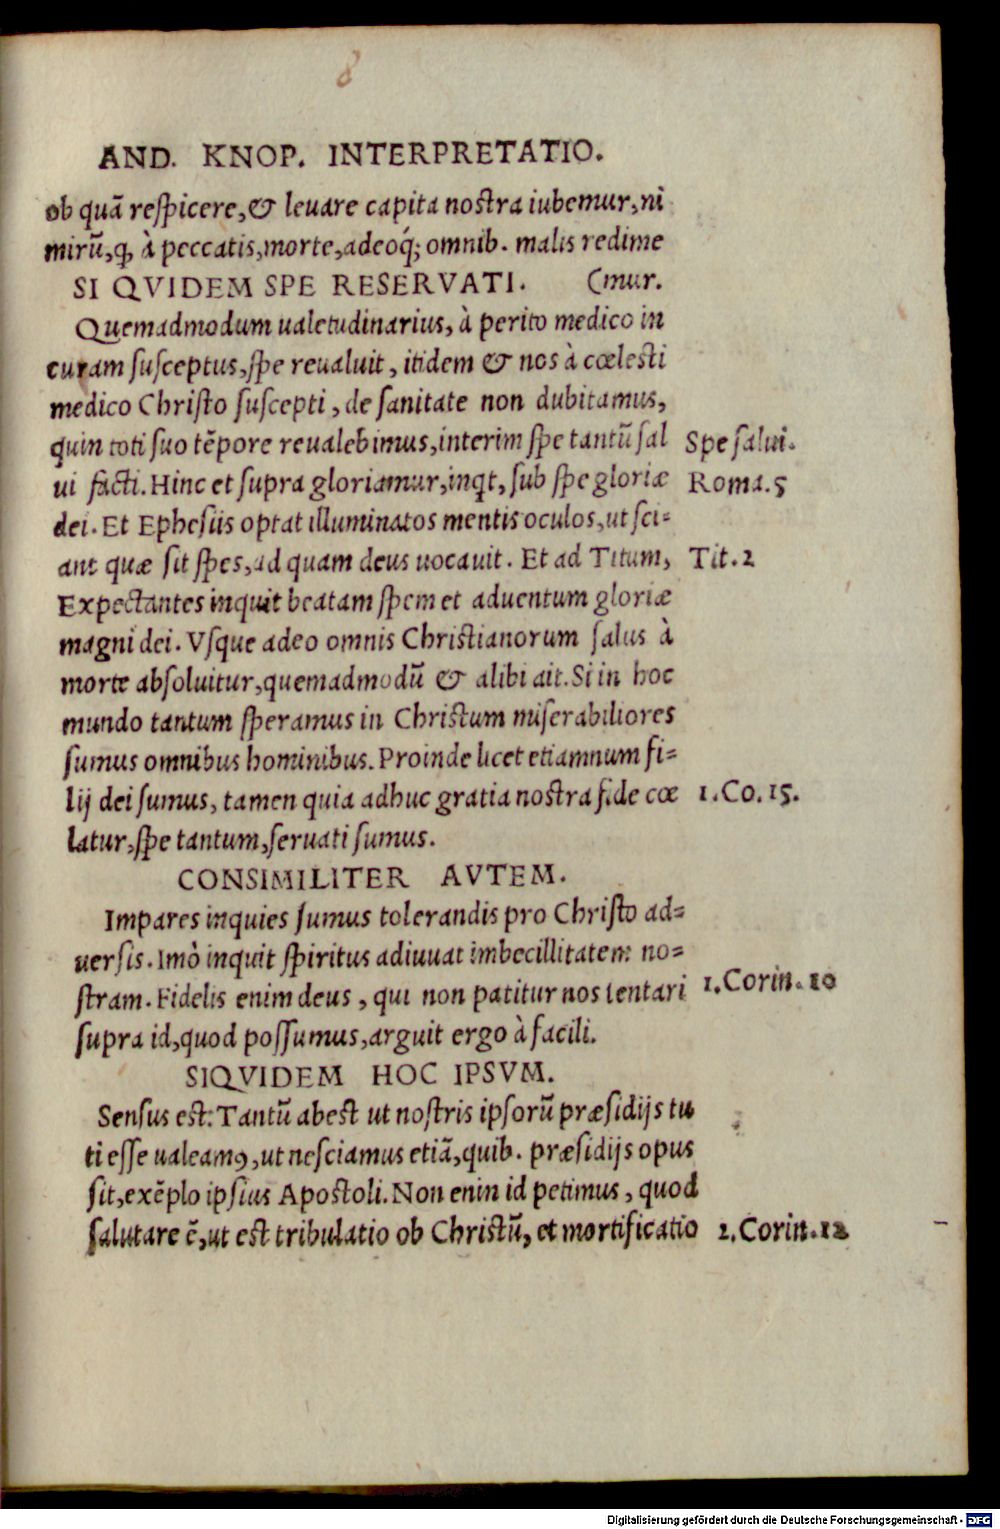 8
AND. KNOP. INTERPRETATIO.
ob quā respicere, & leuare capita nostra iubemur, ni
mirū, ꝙ à peccatis, morte, adeoq́; omnib. malis redime
SI QVIDEM SPE RESERVATI. (mur.
Quemadmodum ualetudinarius, à perito medico in
curam susceptus, spe reualuit, itidem & nos à cœlesti
medico Christo suscepti, de sanitate non dubitamus,
quin toti suo tēpore reualebimus, interim spe tantū sal
Spe salui.
ui facti. Hinc et supra gloriamur, inqt, sub spe gloriæ
Roma. 5
dei. Et Ephesiis optat illuminatos mentis oculos, ut sci-
ant quæ sit spes, ad quam deus uocauit. Et ad Titum,
Tit. 2
Expectantes inquit beatam spem et aduentum gloriæ
magni dei. Vsque adeo omnis Christianorum salus à
morte absoluitur, quemadmodū & alibi ait. Si in hoc
mundo tantum speramus in Christum miserabiliores
sumus omnibus hominibus. Proinde licet etiamnum fi-
lij dei sumus, tamen quia adhuc gratia nostra fide cœ
1. Co. 15.
latur, spe tantum, seruati sumus.
CONSIMILITER AVTEM.
Impares inquies sumus tolerandis pro Christo ad-
uersis. Imò inquit spiritus adiuuat imbecillitatem no-
stram. Fidelis enim deus, qui non patitur nos tentari
1. Corin. 10
supra id, quod possumus, arguit ergo à facili.
SIQVIDEM HOC IPSVM.
Sensus est: Tantū abest ut nostris ipsorū præsidijs tu
ti esse ualeamꝰ, ut nesciamus etiā, quib. præsidijs opus
sit, exēplo ipsius Apostoli. Non enin id petimus, quod
salutare ē, ut est tribulatio ob Christū, et mortificatio
2. Corin. 12
Digitalisierung gefördert durch die Deutsche Forschungsgemeinschaft - DFG